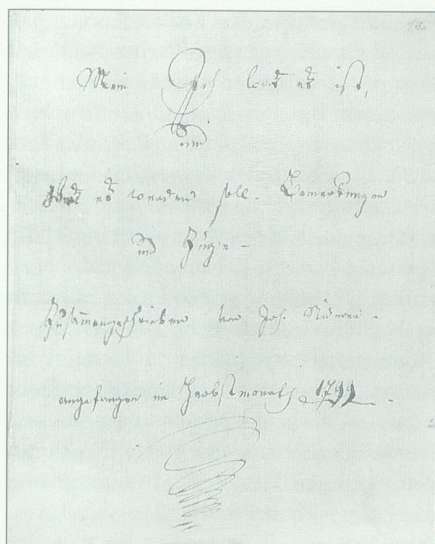 Mein Ich was es ist,
und
was es werden soll. Bemerkungen
und Züge –
Zusammengeschrieben von Joh.
angefangen im Herbstmonath 1799.